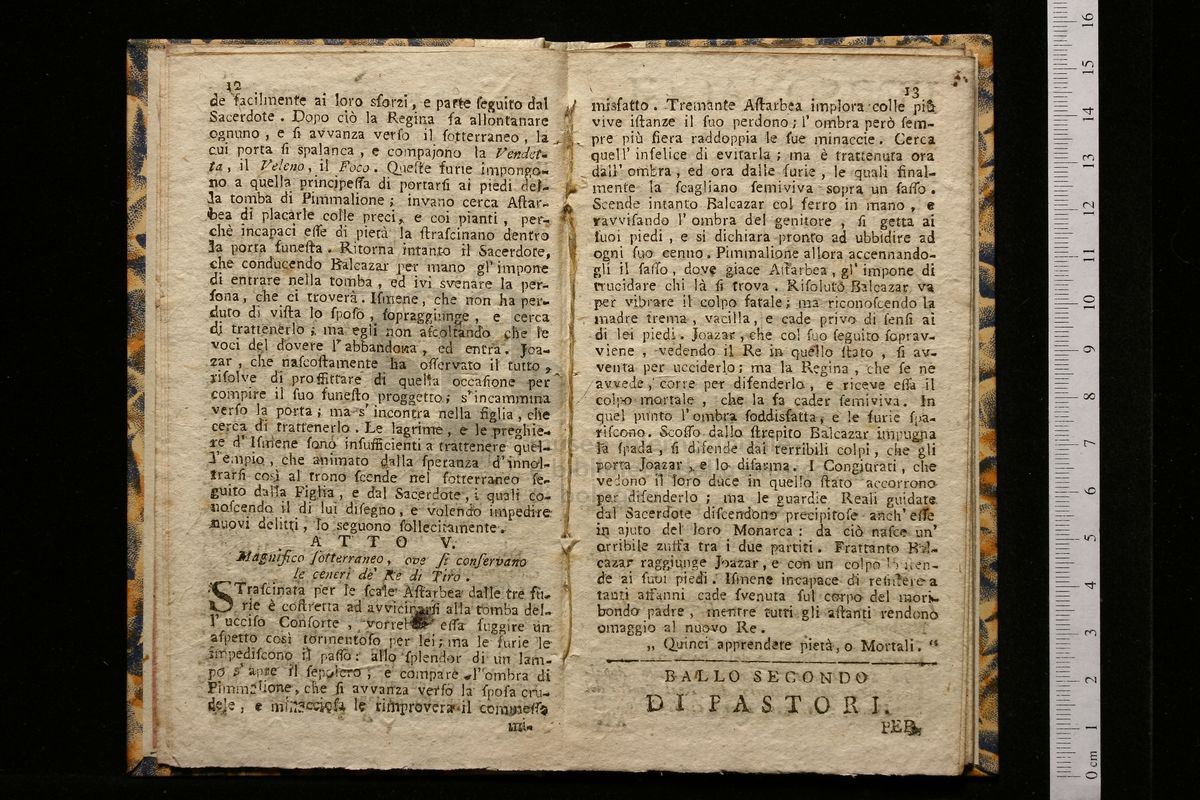 12
de facilmente ai loro sforzi, e parte ſeguito dal
Sacerdote. Dopo ciò la Regina fa allontanare
ognuno, e ſi avvanza verſo il ſotterraneo, la
cui porta ſi ſpalanca, e compajono la Vendet-
ta, il Veleno, il Foco. Queſte furie impongo-
no a quella principeſſa di portarſi ai piedi del-
la tomba di Pimmalione; invano cerca Aſtar-
bea di placarle colle preci, e coi pianti, per-
chè incapaci eſſe di pietà la ſtraſcinano dentro
la porta funeſta. Ritorna intanto il Sacerdote,
che conducendo Balcazar per mano gl' impone
di entrare nella tomba, ed ivi svenare la per-
ſona, che ci troverà. Iſmene, che non ha per-
duto di viſta lo ſpoſo, ſopraggiunge, e cerca
di trattenerlo; ma egli non aſcoltando che le
voci del dovere l'abbandona, ed entra. Joa-
zar, che naſcoſtamente ha oſſervato il tutto,
riſolve di proffittare di quella occaſione per
compire il ſuo funeſto proggetto; s'incammina
verſo la porta; ma s'incontra nella figlia, che
cerca di trattenerlo. Le lagrime, e le preghie-
re d'Iſmene ſono inſufficienti a trattenere quel-
l'empio, che animato dalla ſperanza d'innol-
trarſi così al trono ſcende nel ſotterraneo ſe-
guito dalla Figlia, e dal Sacerdote, i quali co-
noſcendo il di lui diſegno, e volendo impedire
nuovi delitti, lo ſeguono ſollecitamente.
ATTO V.
Magnifico ſotterraneo, ove ſi conſervano
le ceneri de' Re di Tiro.
STraſcinata per le ſcale Aſtarbea dalle tre fu-
rie è coſtretta ad avvicinarſi alla tomba del-
l'ucciſo Conſorte, vorrebbe eſſa fuggire un
aſpetto così tormentoſo per lei; ma le furie le
impediſcono il paſſo: allo ſplendor di un lam-
po s'apre il ſepolcro, e compare l'ombra di
Pimmalione, che ſi avvanza verſo la ſpoſa cru-
dele, e minacciosa le rimprovera il commeſſo
miſ-
13
misfatto. Tremante Aſtarbea implora colle più
vive iſtanze il ſuo perdono; l'ombra però ſem-
pre più fiera raddoppia le ſue minaccie. Cerca
quell'infelice di evitarla; ma è trattenuta ora
dall'ombra, ed ora dalle furie, le quali final-
mente la ſcagliano ſemiviva ſopra un ſaſſo.
Scende intanto Balcazar col ferro in mano, e
ravviſando l'ombra del genitore, ſi getta ai
ſuoi piedi, e si dichiara pronto ad ubbidire ad
ogni ſuo cenno. Pimmalione allora accennando-
gli il ſaſſo, dove giace Aſtarbea, gl' impone di
trucidare chi là ſi trova. Riſoluto Balcazar va
per vibrare il colpo fatale; ma riconoſcendo la
madre trema, vacilla, e cade privo di ſenſi ai
di lei piedi. Joazar, che col ſuo ſeguito ſoprav-
viene, vedendo il Re in quello ſtato, ſi av-
venta per ucciderlo; ma la Regina, che ſe ne
avvede, corre per difenderlo, e riceve eſſa il
colpo mortale, che la fa cader ſemiviva. In
quel punto l'ombra ſoddisfatta, e le furie ſpa-
riſcono. Scoſſo dallo ſtrepito Balcazar impugna
la ſpada, ſi difende dai terribili colpi, che gli
porta Joazar, e lo diſarma. I Congiurati, che
vedono il loro duce in quello ſtato accorrono
per difenderlo; ma le guardie Reali guidate
dal Sacerdote diſcendono precipitoſe anch'eſſe
in ajuto del loro Monarca: da ciò naſce un'
orribile zuffa tra i due partiti. Frattanto Bal-
cazar raggiunge Joazar, e con un colpo lo ſten-
de ai ſuoi piedi. Iſmene incapace di reſiſtere a
tanti affanni cade ſvenuta ſul corpo del mori-
bondo padre, mentre tutti gli aſtanti rendono
omaggio al nuovo Re.
„ Quinci apprendete pietà, o Mortali. “
BALLO SECONDO
DI PASTORI.
PER-
0 cm 1 2 3 4 5 6 7 8 9 10 11 12 13 14 15 16